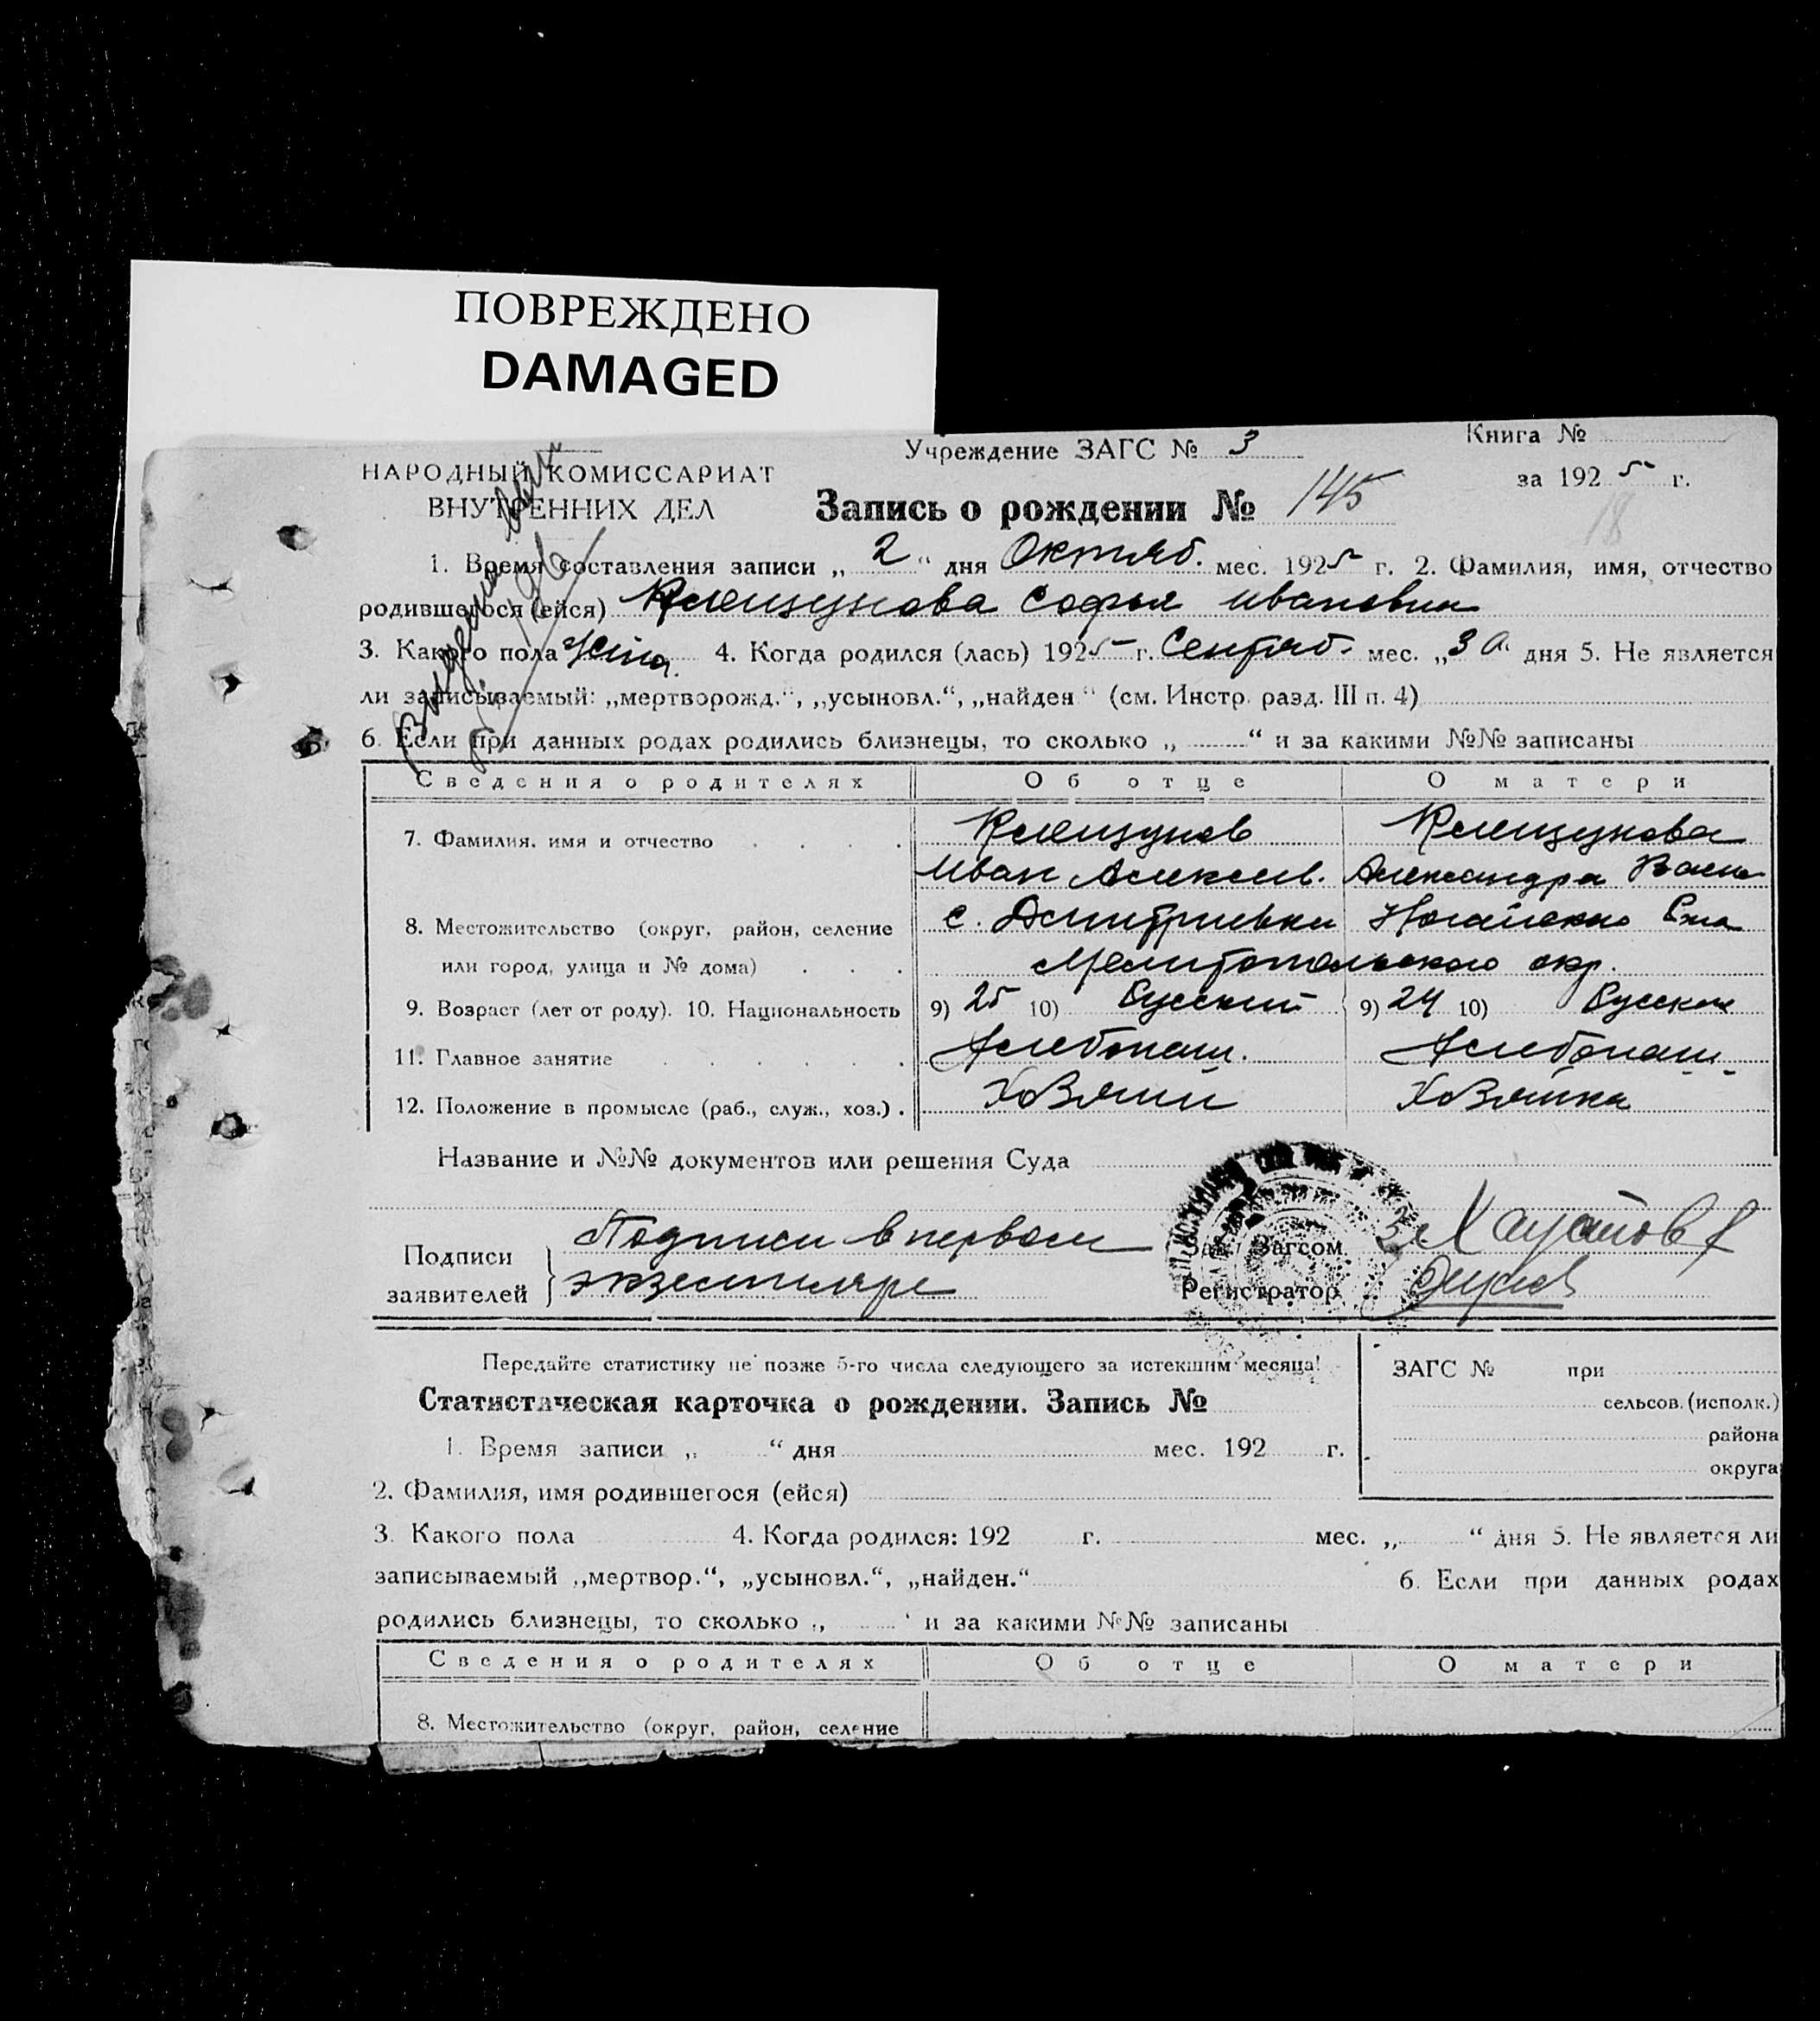 ПОВРЕЖДЕНО
DAMAGED
Учреждение ЗАГС № 3
Книга №
НАРОДНЫЙ КОМИССАРИАТ
ВНУТРЕННИХ ДЕЛ
за 1925 г.
Запись о рождении № 145
18
1. Время составления записи „ 2 “ дня Октяб. мес. 1925 г. 2. Фамилия, имя, отчество
родившегося (ейся) Клещунова Софья Ивановна
3. Какого пола Жен. 4. Когда родился (лась) 1925 г. Сентяб. мес. „ дня 5. Не является
ли записываемый: „мертворожд.“, „усыновл.“, „найден“ (см. Инстр. разд. III п. 4)
6. Если при данных родах родились близнецы, то сколько „ “ и за какими №№ записаны
Сведения о родителях Об отце О матери
7. Фамилия, имя и отчество Клещунов Клещунова
Иван Алексеев. Александра
8. Местожительство (округ, район, селение с. Дмитриевки
или город, улица и № дома) Мелитопольского окр.
9. Возраст (лет от роду). 10. Национальность 9) 25 10) Русский 9) 24 10) Русская
11. Главное занятие Хлебопаш. Хлебопаш.
12. Положение в промысле (раб., служ., хоз.) . Хозяин Хозяйка
Название и №№ документов или решения Суда
Подписи
заявителей
Подписи в первом
экземпляре
Зав. Загсом
Регистратор
Передайте статистику не позже 5-го числа следующего за истекшим месяца!
Статистическая карточка о рождении. Запись №
ЗАГС № при
сельсов. (исполк.)
района
округа
1. Время записи „ “ дня мес. 192 г.
2. Фамилия, имя родившегося (ейся)
3. Какого пола 4. Когда родился: 192 г. мес. „ “ дня 5. Не является ли
записываемый „мертвор.“, „усыновл.“, „найден.“ 6. Если при данных родах
родились близнецы, то сколько „ “ и за какими №№ записаны
Сведения о родителях Об отце О матери
8. Местожительство (округ, район, селение